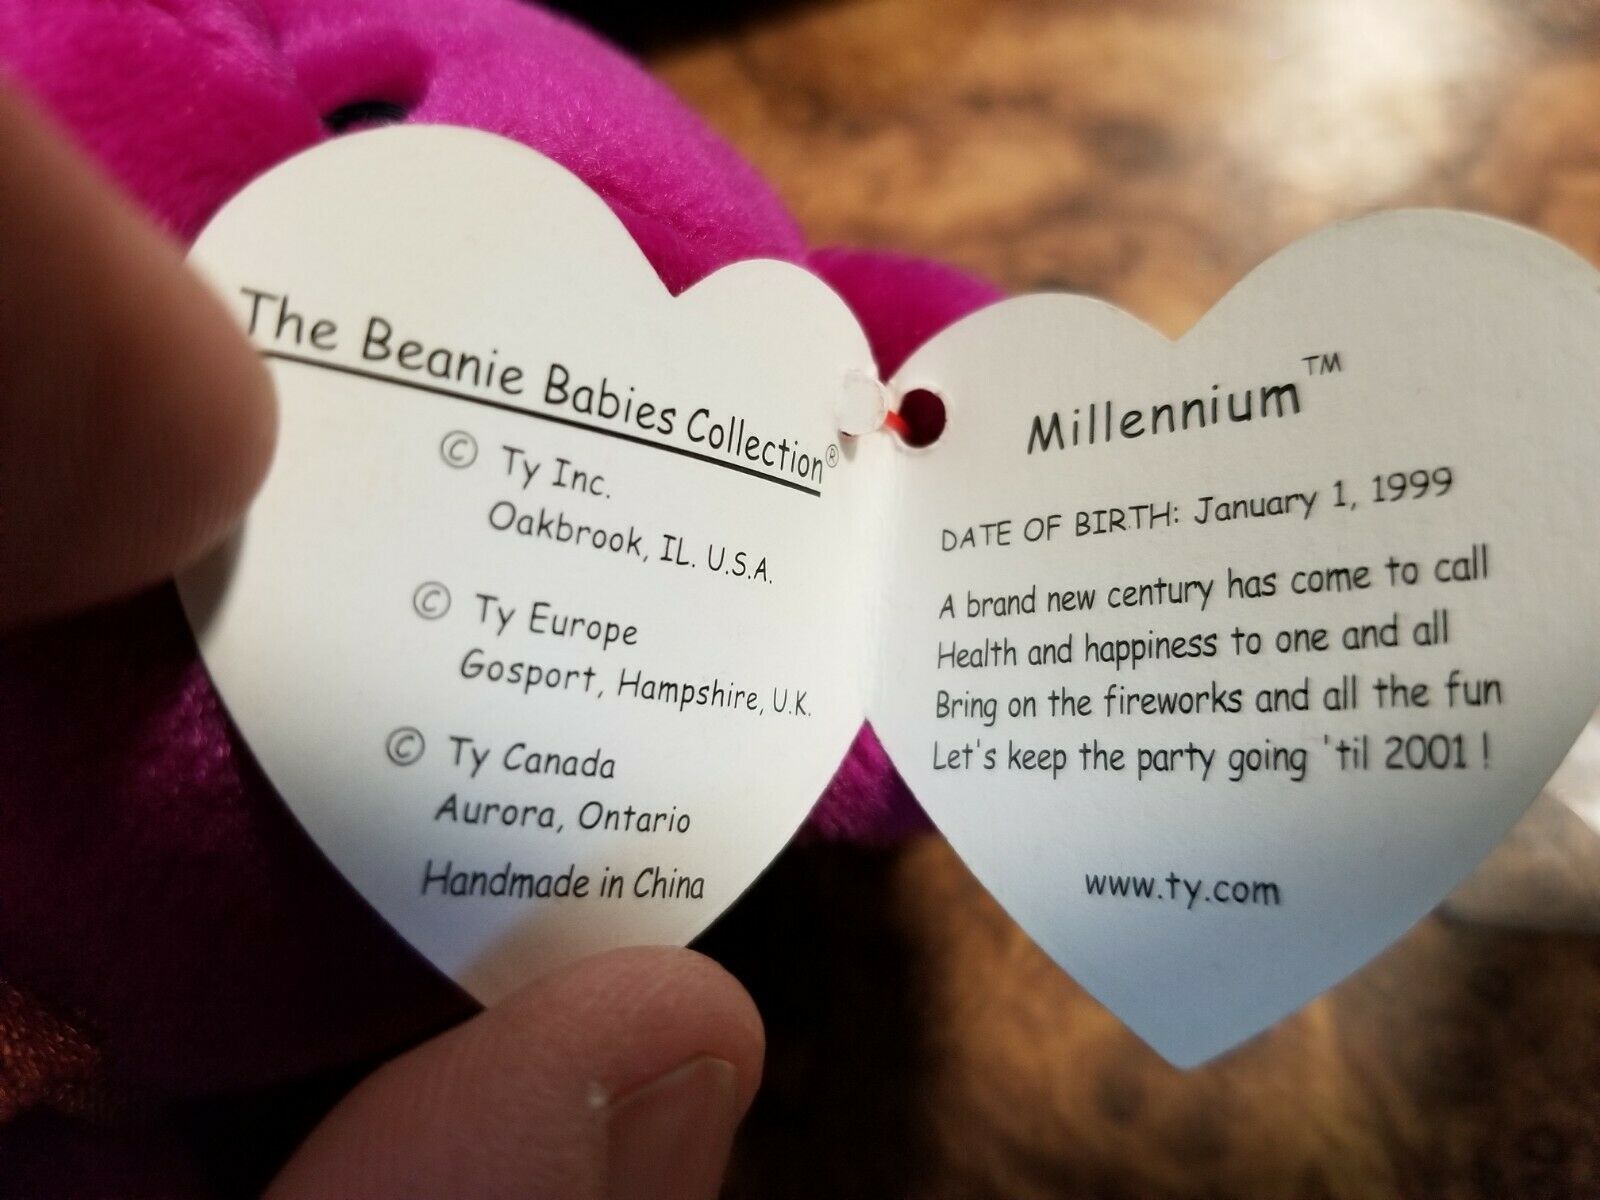 The Beanie Babies Collection®
© Ty Inc.
Oakbrook, IL. U.S.A.
© Ty Europe
Gosport, Hampshire, U.K.
© Ty Canada
Aurora, Ontario
Handmade in China
Millennium™
DATE OF BIRTH: January 1, 1999
A brand new century has come to call
Health and happiness to one and all
Bring on the fireworks and all the fun
Let's keep the party going 'til 2001 !
www.ty.com